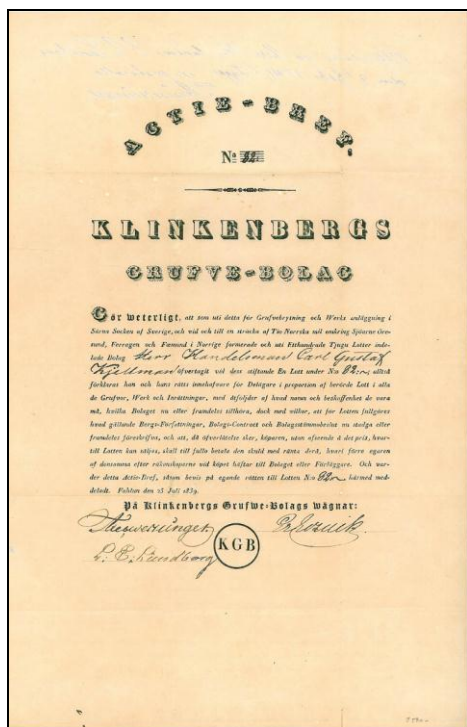 ACTIE-BREF.
No 92
KLINKENBERGS
GRUFVE-BOLAG
Gör weterligt, att som uti detta för Grufvebrytning och Werks anläggning i
Särna Socken af Sverige, och vid och till en sträcka af Tio Norrska mil omkring Sjöarne Ore-
sund, Feeragen och Fæmund i Norrige formerade och uti Etthundrade Tjugu Lotter inde-
lade Bolag Herr Handelsman Carl Gustaf
Kjellman öfvertagit vid dess stiftande En Lott under No 92:n, alltså
förklaras han och hans rätts innehafvare för Delägare i proportion af berörde Lott i alla
de Grufvor, Werk och Inrättningar, med åtföljder af hvad namn och beskaffenhet de vara
må, hvilka Bolaget nu eller framdeles tillhöra, dock med vilkor, att för Lotten fullgöres
hvad gällande Bergs-Författningar, Bolags-Contract och Bolagsstämmobeslut nu stadga eller
framdeles föreskrifva, och att, då öfverlåtelse sker, köparen, utan afseende å det pris, hvar-
till Lotten kan säljas, skall till fullo betala den skuld med ränta derå, hvari förre egaren
af densamma efter räkenskaperne vid köpet häftar till Bolaget eller Förläggare. Och war-
der detta Actie-Bref, såsom bevis på egande rätten till Lotten No 92n härmed med-
deladt. Fahlun den 23 Juli 1839.
På Klinkenbergs Grufwe-Bolags wägnar:
KGB
L. E. Lundborg